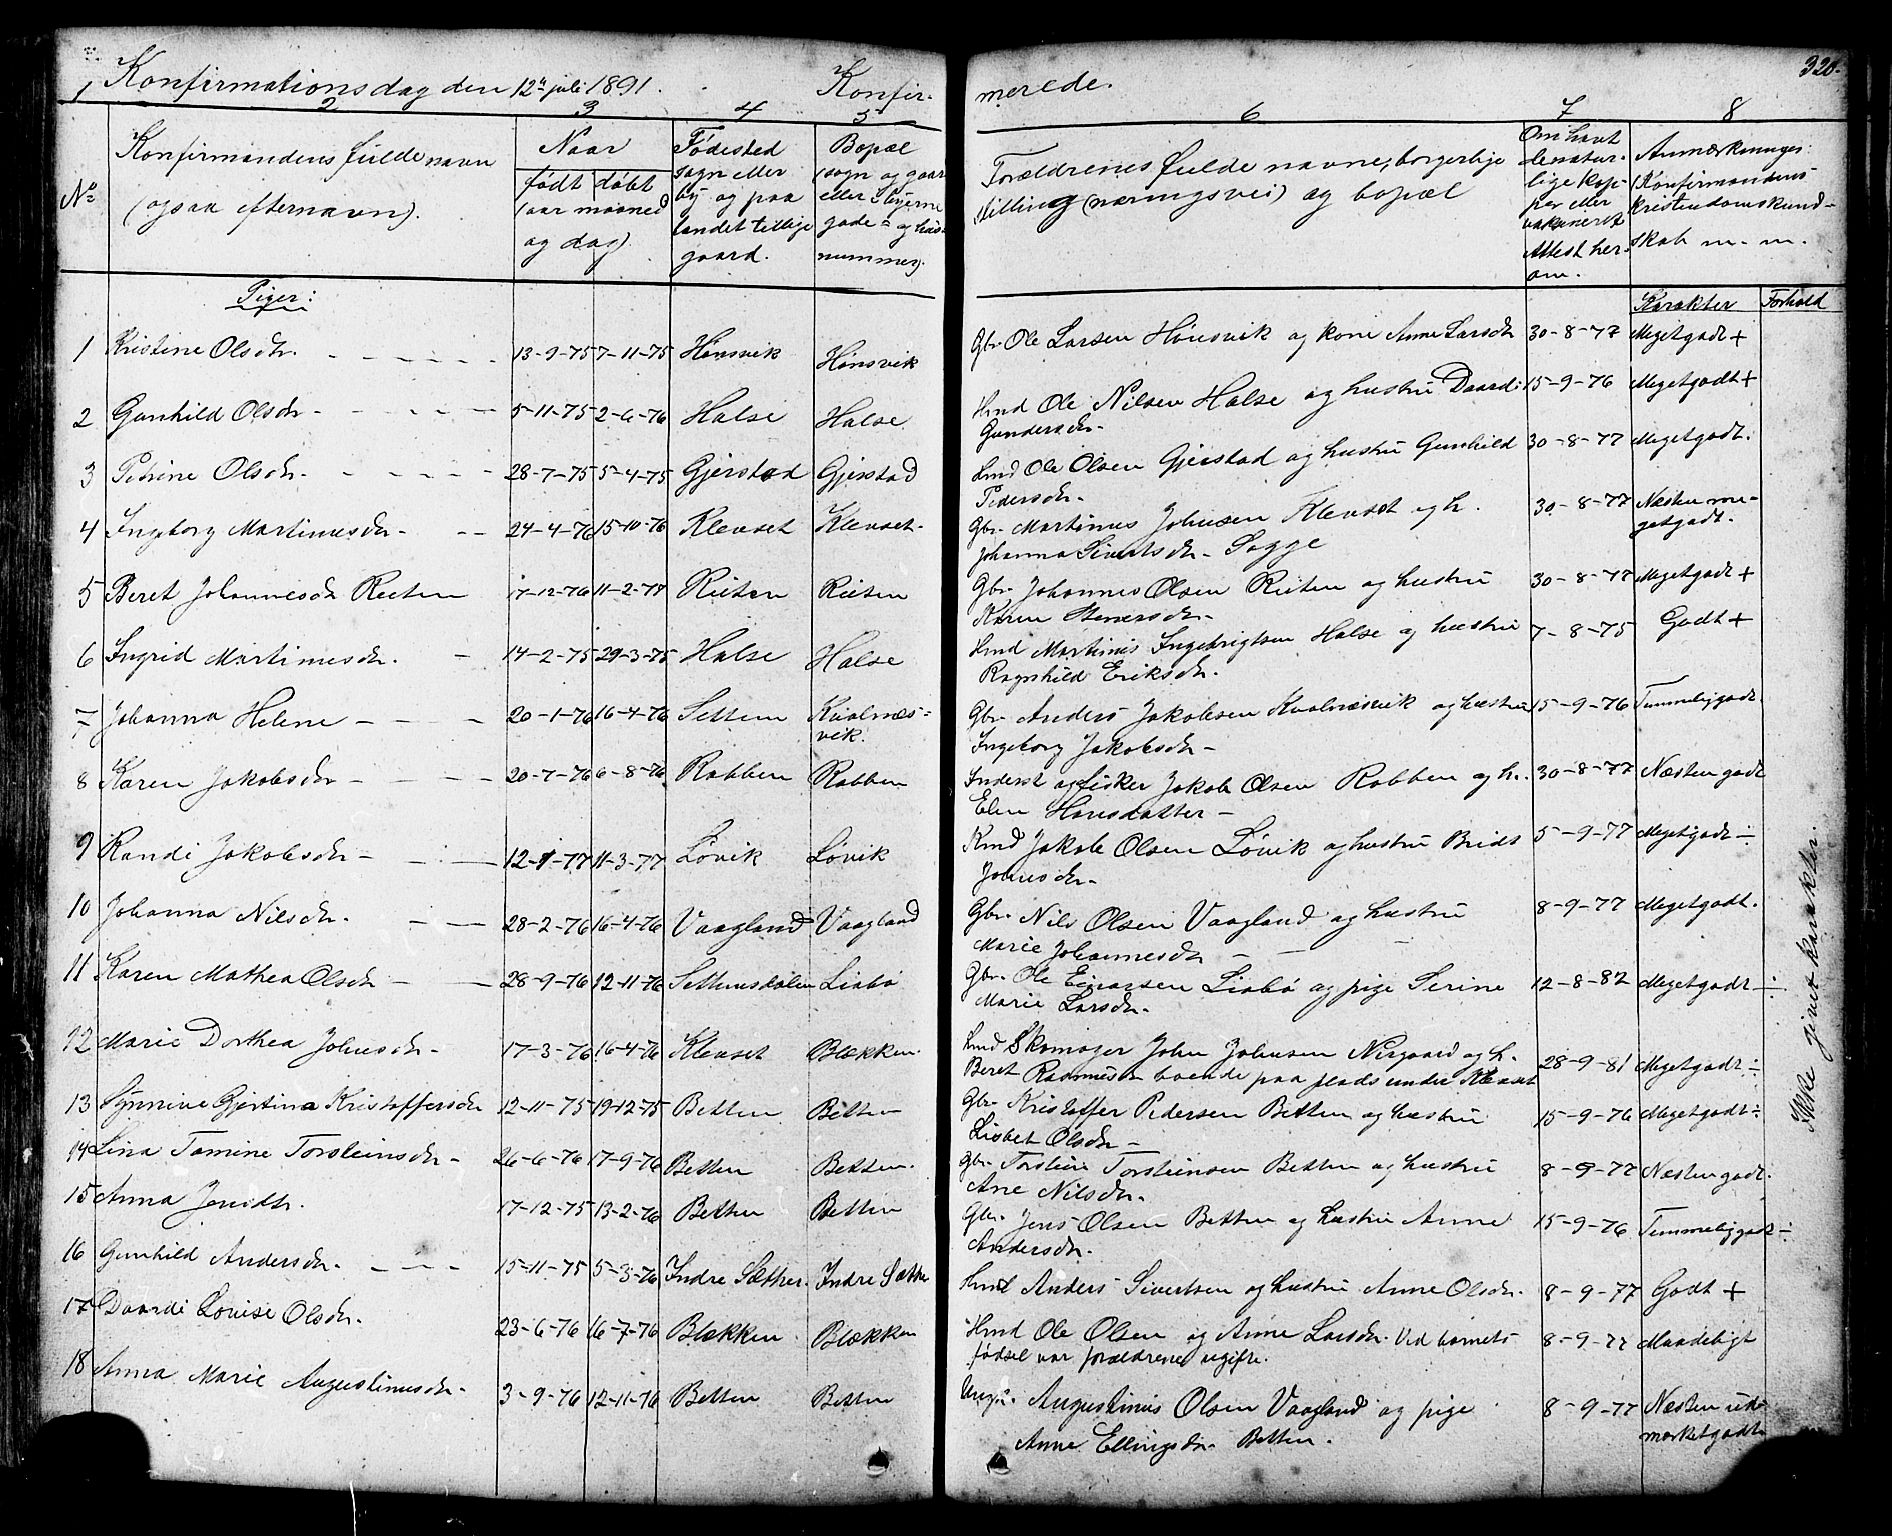 320.
1 Konfirmationsdag den 12te juli 1891. Konfir- merede.
2 3 4 5 6 7 8
No
Konfirmandens fulde navn
(ogsaa efternavn).
Naar
født døbt
(aar maaned
og dag).
Fødested
sogn eller
by og paa
landet tillige
gaard.
Bopæl
(sogn og gaar
eller i byerne
gade- og hus-
nummer).
Forældrenes fulde navne, borgerlige
stilling (næringsvei) og bopæl
Om havt
denatur-
lige kop-
per eller
vakcineret
Attest her-
om.
Anmærkninger:
(Konfirmandens
kristendomskund-
skab m. m.
Karakter Forhold
Piger:
1 Kristine Olsdtr. 13-9-75 7-11-75 Hønsvik Hønsvik Gbr. Ole Larsen Hønsvik og kone Anne Larsdtr 30-8-77 Megetgodt +
2 Gunhild Olsdtr - 5-11-75 2-6-76 Halse Halse Hmd Ole Nilsen Halse og hustru Daardi 15-9-76 Megetgodt +
Gundersdtr-
3 Petrine Olsdtr. 28-7-75 5-4-75 Gjerstad Gjerstad Hmd Ole Olsen Gjerstad og hustru Gunhild 30-8-77 Megetgodt.
Pedersdtr-
4 Ingeborg Martinusdtr - 24-4-76 15-10-76 Klevset Klevset- Gbr. Martinus Johnsen Klevset og h. 30-8-77 Næsten me-
Johanna Sivertsdtr- Sogge getgodt.
5 Beret Johannesdtr Reeten 17-12-76 11-2-77 Reeten Reeten Gbr. Johannes Olsen Reeten og hustru 30-8-77 Megetgodt +
Karen Stenersdtr-
6 Ingrid Martinusdtr. - 14-2-75 29-3-75 Halse Halse Hmd Martinus Ingebrigtsen Halse og hustru 7-8-75 Godt +
Ragnhild Eriksdtr.
7 Johanna Helene - 20-1-76 16-4-76 Settem Kvalnæs- Gbr. Anders Jakobsen Kvalnæsvik og hustru 15-9-76 Temmeliggodt
vik. Ingeborg Jakobsdtr -
8 Karen Jakobsdtr - 20-7-76 6-8-76 Rabben Rabben Inderst og fisker Jakob Olsen Rabben og h. 30-8-77 Næsten godt
Elen Hansdatter -
9 Randi Jakobsdtr - 12-1-77 11-3-77 Løvik Løvik Hmd Jakob Olsen Løvik og hustru Brit 5-9-77 Megetgodt ÷
Jonsdtr-
10 Johanna Nilsdtr. 28-2-76 16-4-76 Vaagland Vaagland Gbr. Nils Olsen Vaagland og hustru 8-9-77 Megetgodt.
Marie Johannesdtr -
11 Karen Mathea Olsdtr - 28-9-76 12-11-76 Settemsdalen Liabø Gbr. Ole Einarsen Liabø og pige Serine 12-8-82 Megetgodt ÷
Marie Larsdtr.
12 Marie Dorthea Johnsdtr - 17-3-76 16-4-76 Klevset Blekken. Hmd Skomager John Johnsen Nergaard og h. 28-9-81 Megetgodt ÷
Beret Rasmusdtr boende paa plads under Klevset
13 Synnive Gjertina Kristoffersdtr 12-11-75 19-12-75 Betten Betten Gbr. Kristoffer Pedersen Betten og hustru 15-9-76 Megetgodt ÷
Lisbet Olsdtr -
14 Lina Tomine Torsteinsdtr - 26-6-76 17-9-76 Betten Betten. Gbr. Torstein Torsteinsen Betten og hustru 8-9-77 Næsten godt.
Ane Nilsdtr.
15 Anna Jensdtr. 17-12-75 13-2-76 Betten Betten Gbr. Jens Olsen Betten og hustru Anne 15-9-76 Temmeliggodt ÷
Andersdtr.
16 Gunhild Andersdtr. 15-11-75 5-3-76 Indre Sæther. Indre Sæther Hmd Anders Sivertsen og hustru Anne Olsdtr. 8-9-77 Godt +
17 Daardi Lovise Olsdtr. 23-6-76 16-7-76 Blekken Blekken Hmd Ole Olsen og Anne Larsdtr. Ved barnets 8-9-77 Maadeligt
fødsel var forældrene ugifte.
18 Anna Marie Augustinusdtr. 3-9-76 12-11-76 Betten Betten Ungk. Augustinus Olsen Vaagland og pige 8-9-77 Næsten ud-
Anne Ellingsdtr. Betten. mærketgodt
Ikke givet karakter.